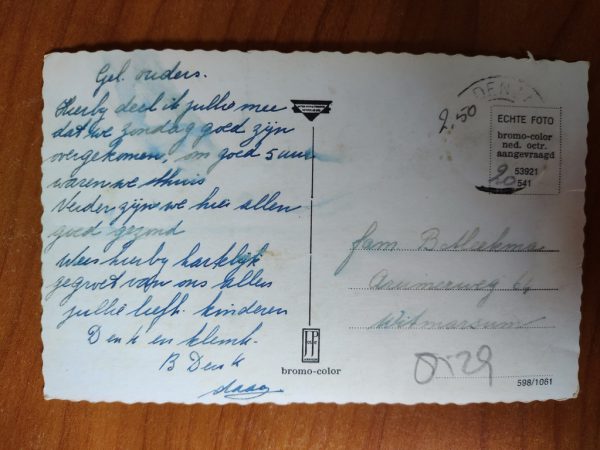 Gel. ouders.
Hierby deel ik jullie mee
dat we zondag goed zijn
overgekomen, om goed 5 uur
waren we thuis
Verder zijn we hier allen
goed gezond
Wees hierby hartelijk
gegroet van ons alles
jullie liefh. kinderen
Denk en
B Denk
daag
bromo-color
2.50
DEN
ECHTE FOTO
bromo-color
ned. octr.
aangevraagd
53921
541
20
fam B
Arumerweg
Witmarsum
0.29
598/1061